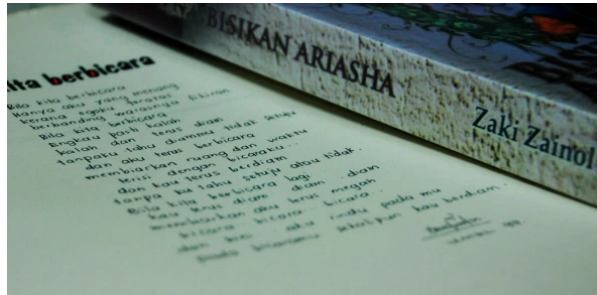 BISIKAN ARIASHA
Zaki Zainol
kita berbicara
Bila kita berbicara
Hanya aku yang menang
kerana egoku beraras
berbanding warasnya fikiran
Bila kita
Engkau pasti kalah dan
kalah dan terus diam
tanpaku tahu diammu tidak setuju
dan aku terus berbicara
membiarkan ruang dan waktu
terisi dengan bicaraku..
dan kau terus berdiam
tanpa ku tahu setuju atau tidak.
Bila kita berbicara lagi
kau terus diam diam.. diam
membiarkan aku terus megah
bicara bicara bicara..
dan kini.. aku rindu pada mu
pada bicaramu sekalipun kau berdiam.